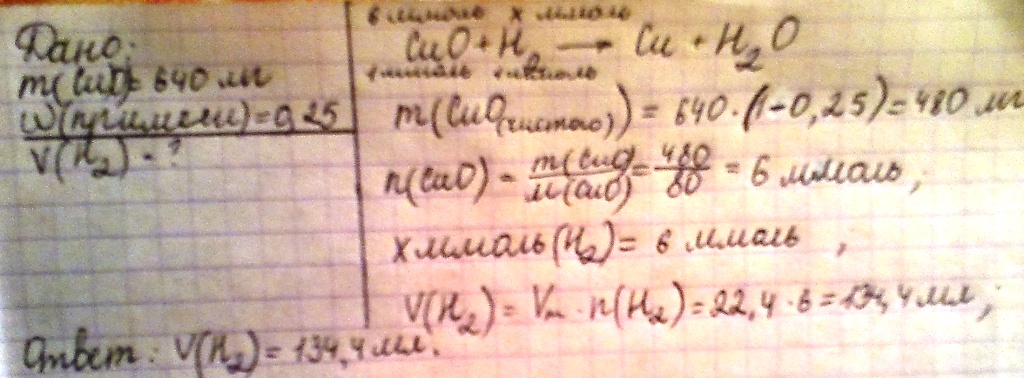 Дано:
m(CuO)= 640 мг
ω(примеси)=0,25
V(H₂) - ?
6 ммоль x ммоль
CuO + H₂ → Cu + H₂O
1 ммоль 1 ммоль
m(CuO(чистого)) = 640·(1-0,25)=480 мг
n(CuO) = m(CuO)/M(CuO) = 480/80 = 6 ммоль;
x ммоль(H₂)= 6 ммоль ,
V(H₂) = Vm · n(H₂)=22,4·6=134,4 мл;
Ответ: V(H₂)= 134,4 мл.